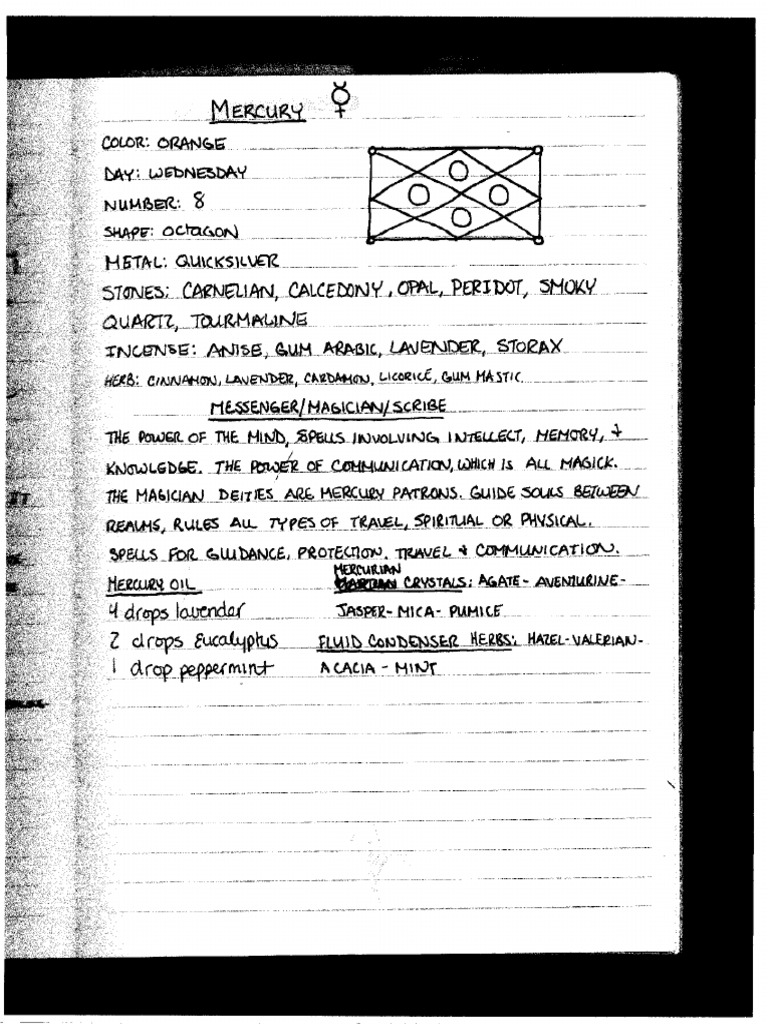 MERCURY ☿
COLOR: ORANGE
DAY: WEDNESDAY
NUMBER: 8
SHAPE: OCTAGON
METAL: QUICKSILVER
STONES: CARNELIAN, CALCEDONY, OPAL, PERIDOT, SMOKY
QUARTZ, TOURMALINE
INCENSE: ANISE, GUM ARABIC, LAVENDER, STORAX
HERB: CINNAMON, LAVENDER, CARDAMON, LICORICE, GUM MASTIC
MESSENGER/MAGICIAN/SCRIBE
THE POWER OF THE MIND, SPELLS INVOLVING INTELLECT, MEMORY, &
KNOWLEDGE. THE POWER OF COMMUNICATION, WHICH IS ALL MAGICK.
THE MAGICIAN DEITIES ARE MERCURY PATRONS. GUIDE SOULS BETWEEN
REALMS, RULES ALL TYPES OF TRAVEL, SPIRITUAL OR PHYSICAL.
SPELLS FOR GUIDANCE, PROTECTION, TRAVEL & COMMUNICATION.
MERCURY OIL
4 drops lavender
2 drops Eucalyptus
1 drop peppermint
MERCURIAN
CRYSTALS: AGATE - AVENTURINE -
JASPER - MICA - PUMICE
FLUID CONDENSER HERBS: HAZEL - VALERIAN -
ACACIA - MINT
IT